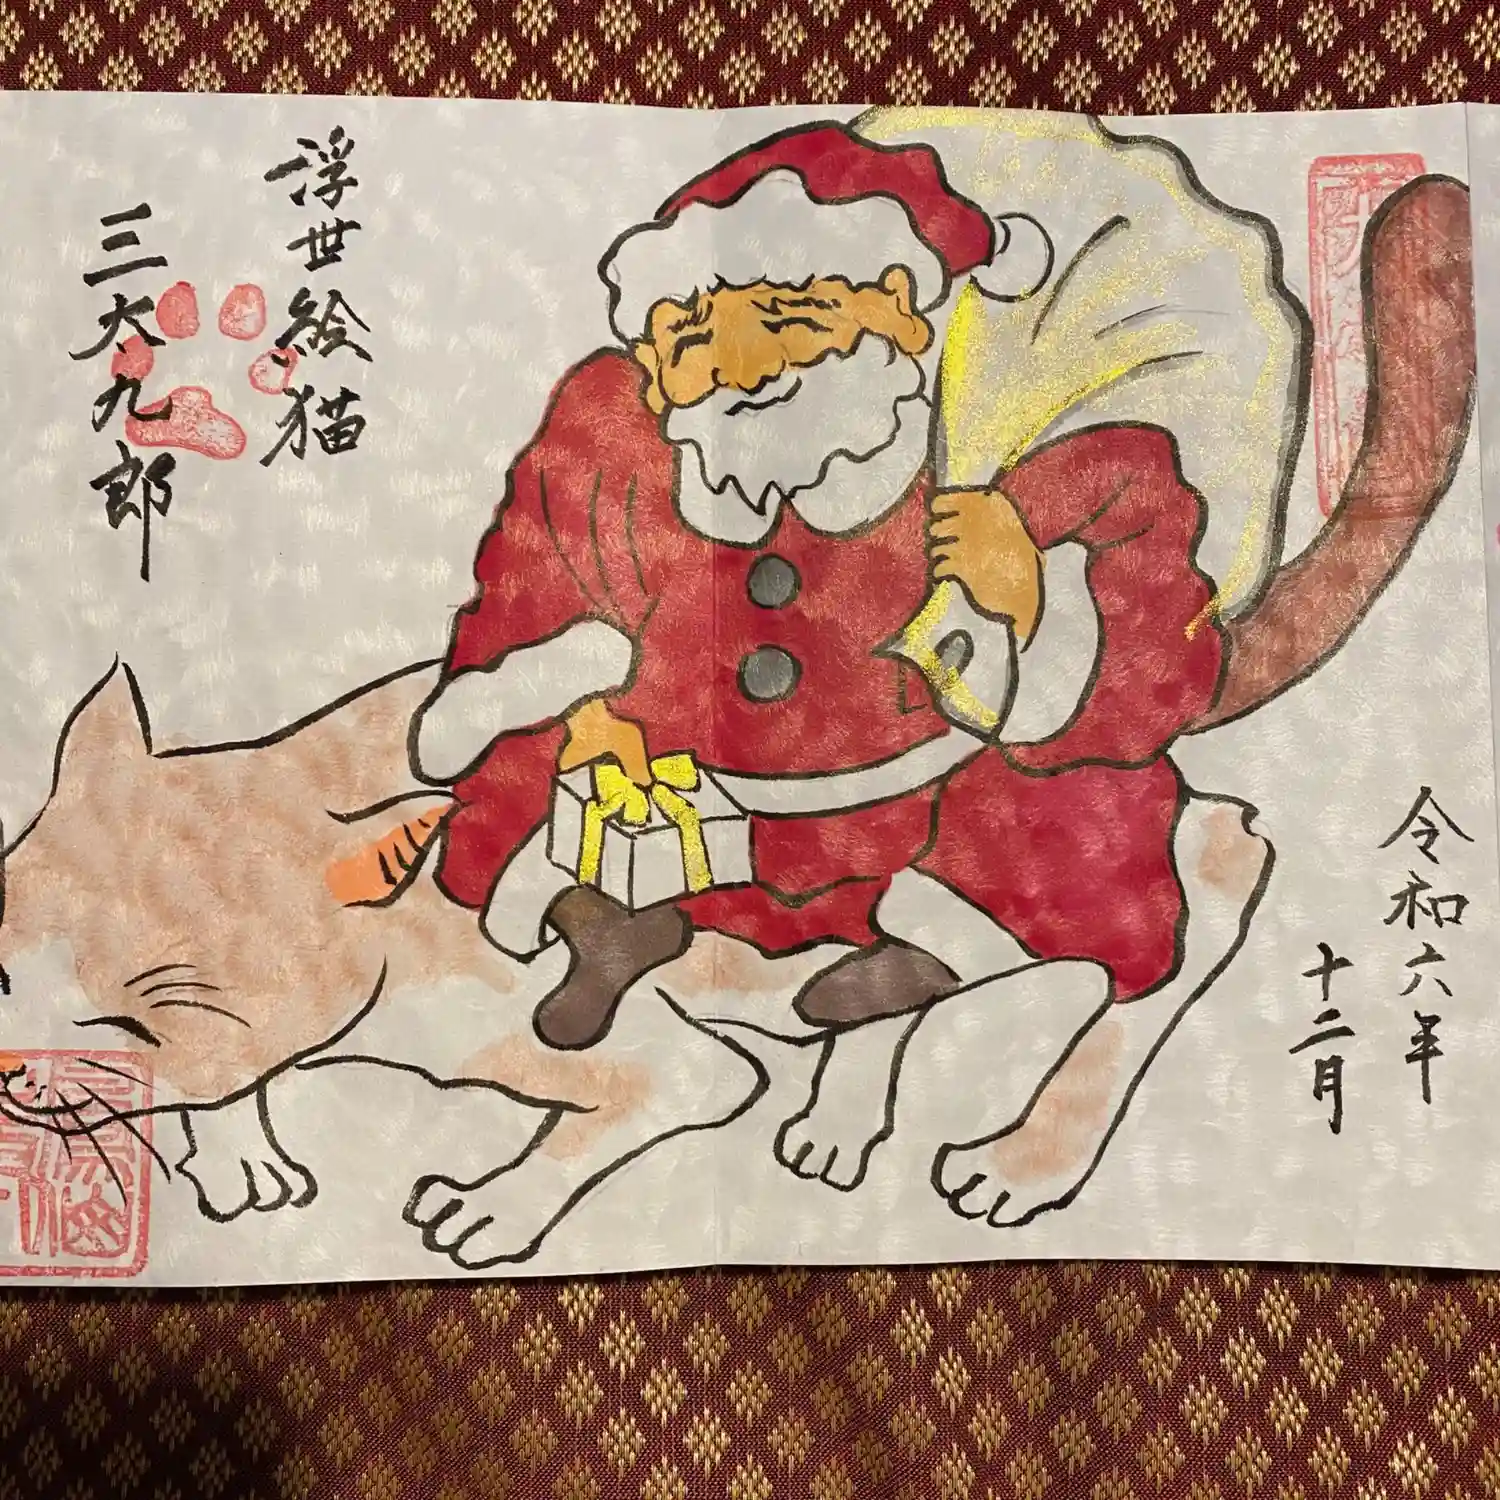 令和六年
十二月
浮世絵猫
三太九郎